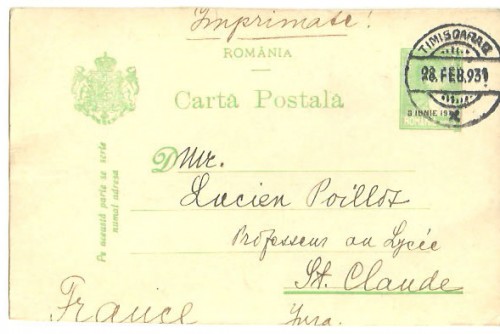 Imprimate!
ROMÂNIA
Cartă Poștală
TIMIȘOARA 2
28. FEB. 931
8 IUNIE 19
Pe această parte se scrie
numai adresa
DMr.
Lucien Poillot
Professeur au Lycée
St. Claude
France Jura.